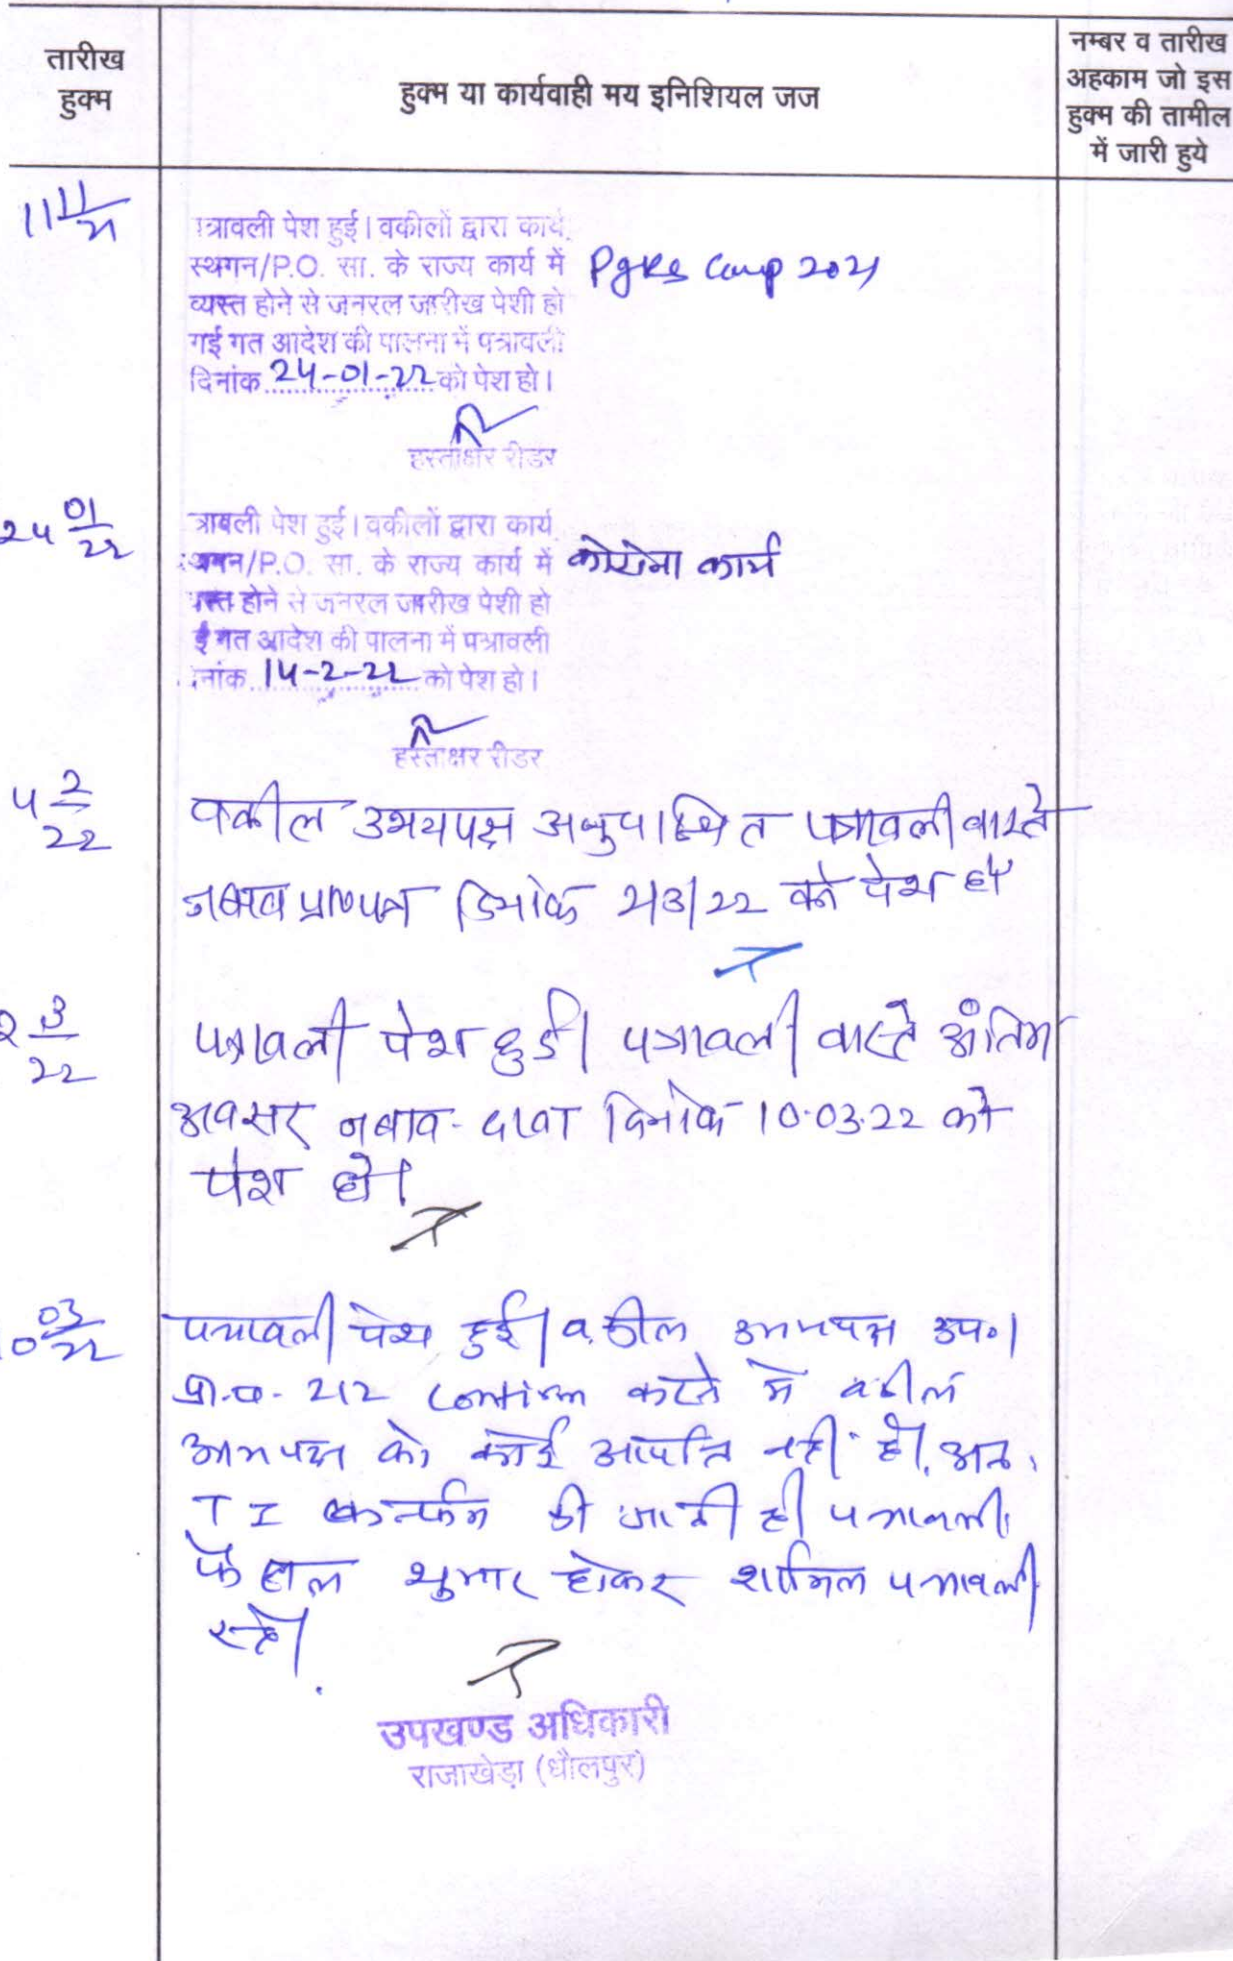 तारीख
हुक्म
हुक्म या कार्यवाही मय इनिशियल जज
नम्बर व तारीख
अहकाम जो इस
हुक्म की तामील
में जारी हुये
11 11/21
त्रावली पेश हुई। वकीलों द्वारा कार्य
स्थगन/P.O. सा. के राज्य कार्य में Pgks Camp 2021
व्यस्त होने से जनरल जारीख पेशी हो
गई गत आदेश की पालना में पत्रावली
दिनांक 24-01-22 को पेश हो।
हस्ताक्षर रीडर
24 01/22
त्रावली पेश हुई। वकीलों द्वारा कार्य
थगन/P.O. सा. के राज्य कार्य में कोरोना कार्य
यस्त होने से जनरल जारीख पेशी हो
ई गत आदेश की पालना में पत्रावली
नांक 14-2-22 को पेश हो।
हस्ताक्षर रीडर
4 2/22
वकील उभयपक्ष अनुपस्थित पत्रावली वास्ते
जबाव प्रा०पत्र दिनांक 2/3/22 को पेश हो
2 3/22
पत्रावली पेश हुई। पत्रावली वास्ते अंतिम
अवसर जबाव-दावा दिनांक 10.03.22 को
पेश हो।
0 03/22
पत्रावली पेश हुई। वकील उभयपक्ष उप०।
प्रा.प. 212 confirm करने में वकील
उभयपक्ष को कोई आपत्ति नहीं है। अतः
T I कन्फर्म की जाती है। पत्रावली
फैसल शुमार होकर शामिल पत्रावली
रहे।
उपखण्ड अधिकारी
राजाखेड़ा (धौलपुर)